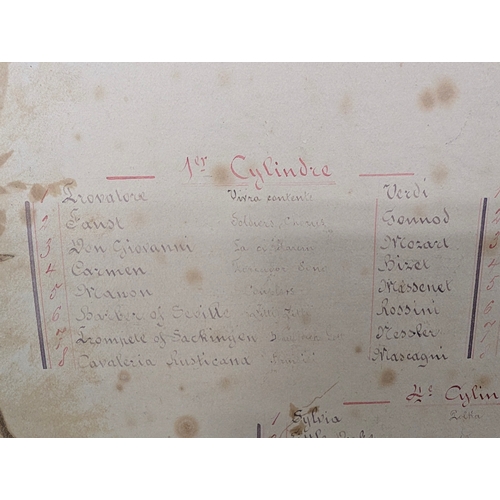 1er Cylindre
1 Trovatore Vivra contente Verdi
2 Faust Soldiers Gounod
3 Don Giovanni La ci Mozart
4 Carmen Toreador Song Bizet
5 Manon Massenet
6 Barber of Seville Rossini
7 Trompete of Sackingen Nessler
8 Cavaleria Rusticana Mascagni
4e Cylin
Polka
1 Sylvia